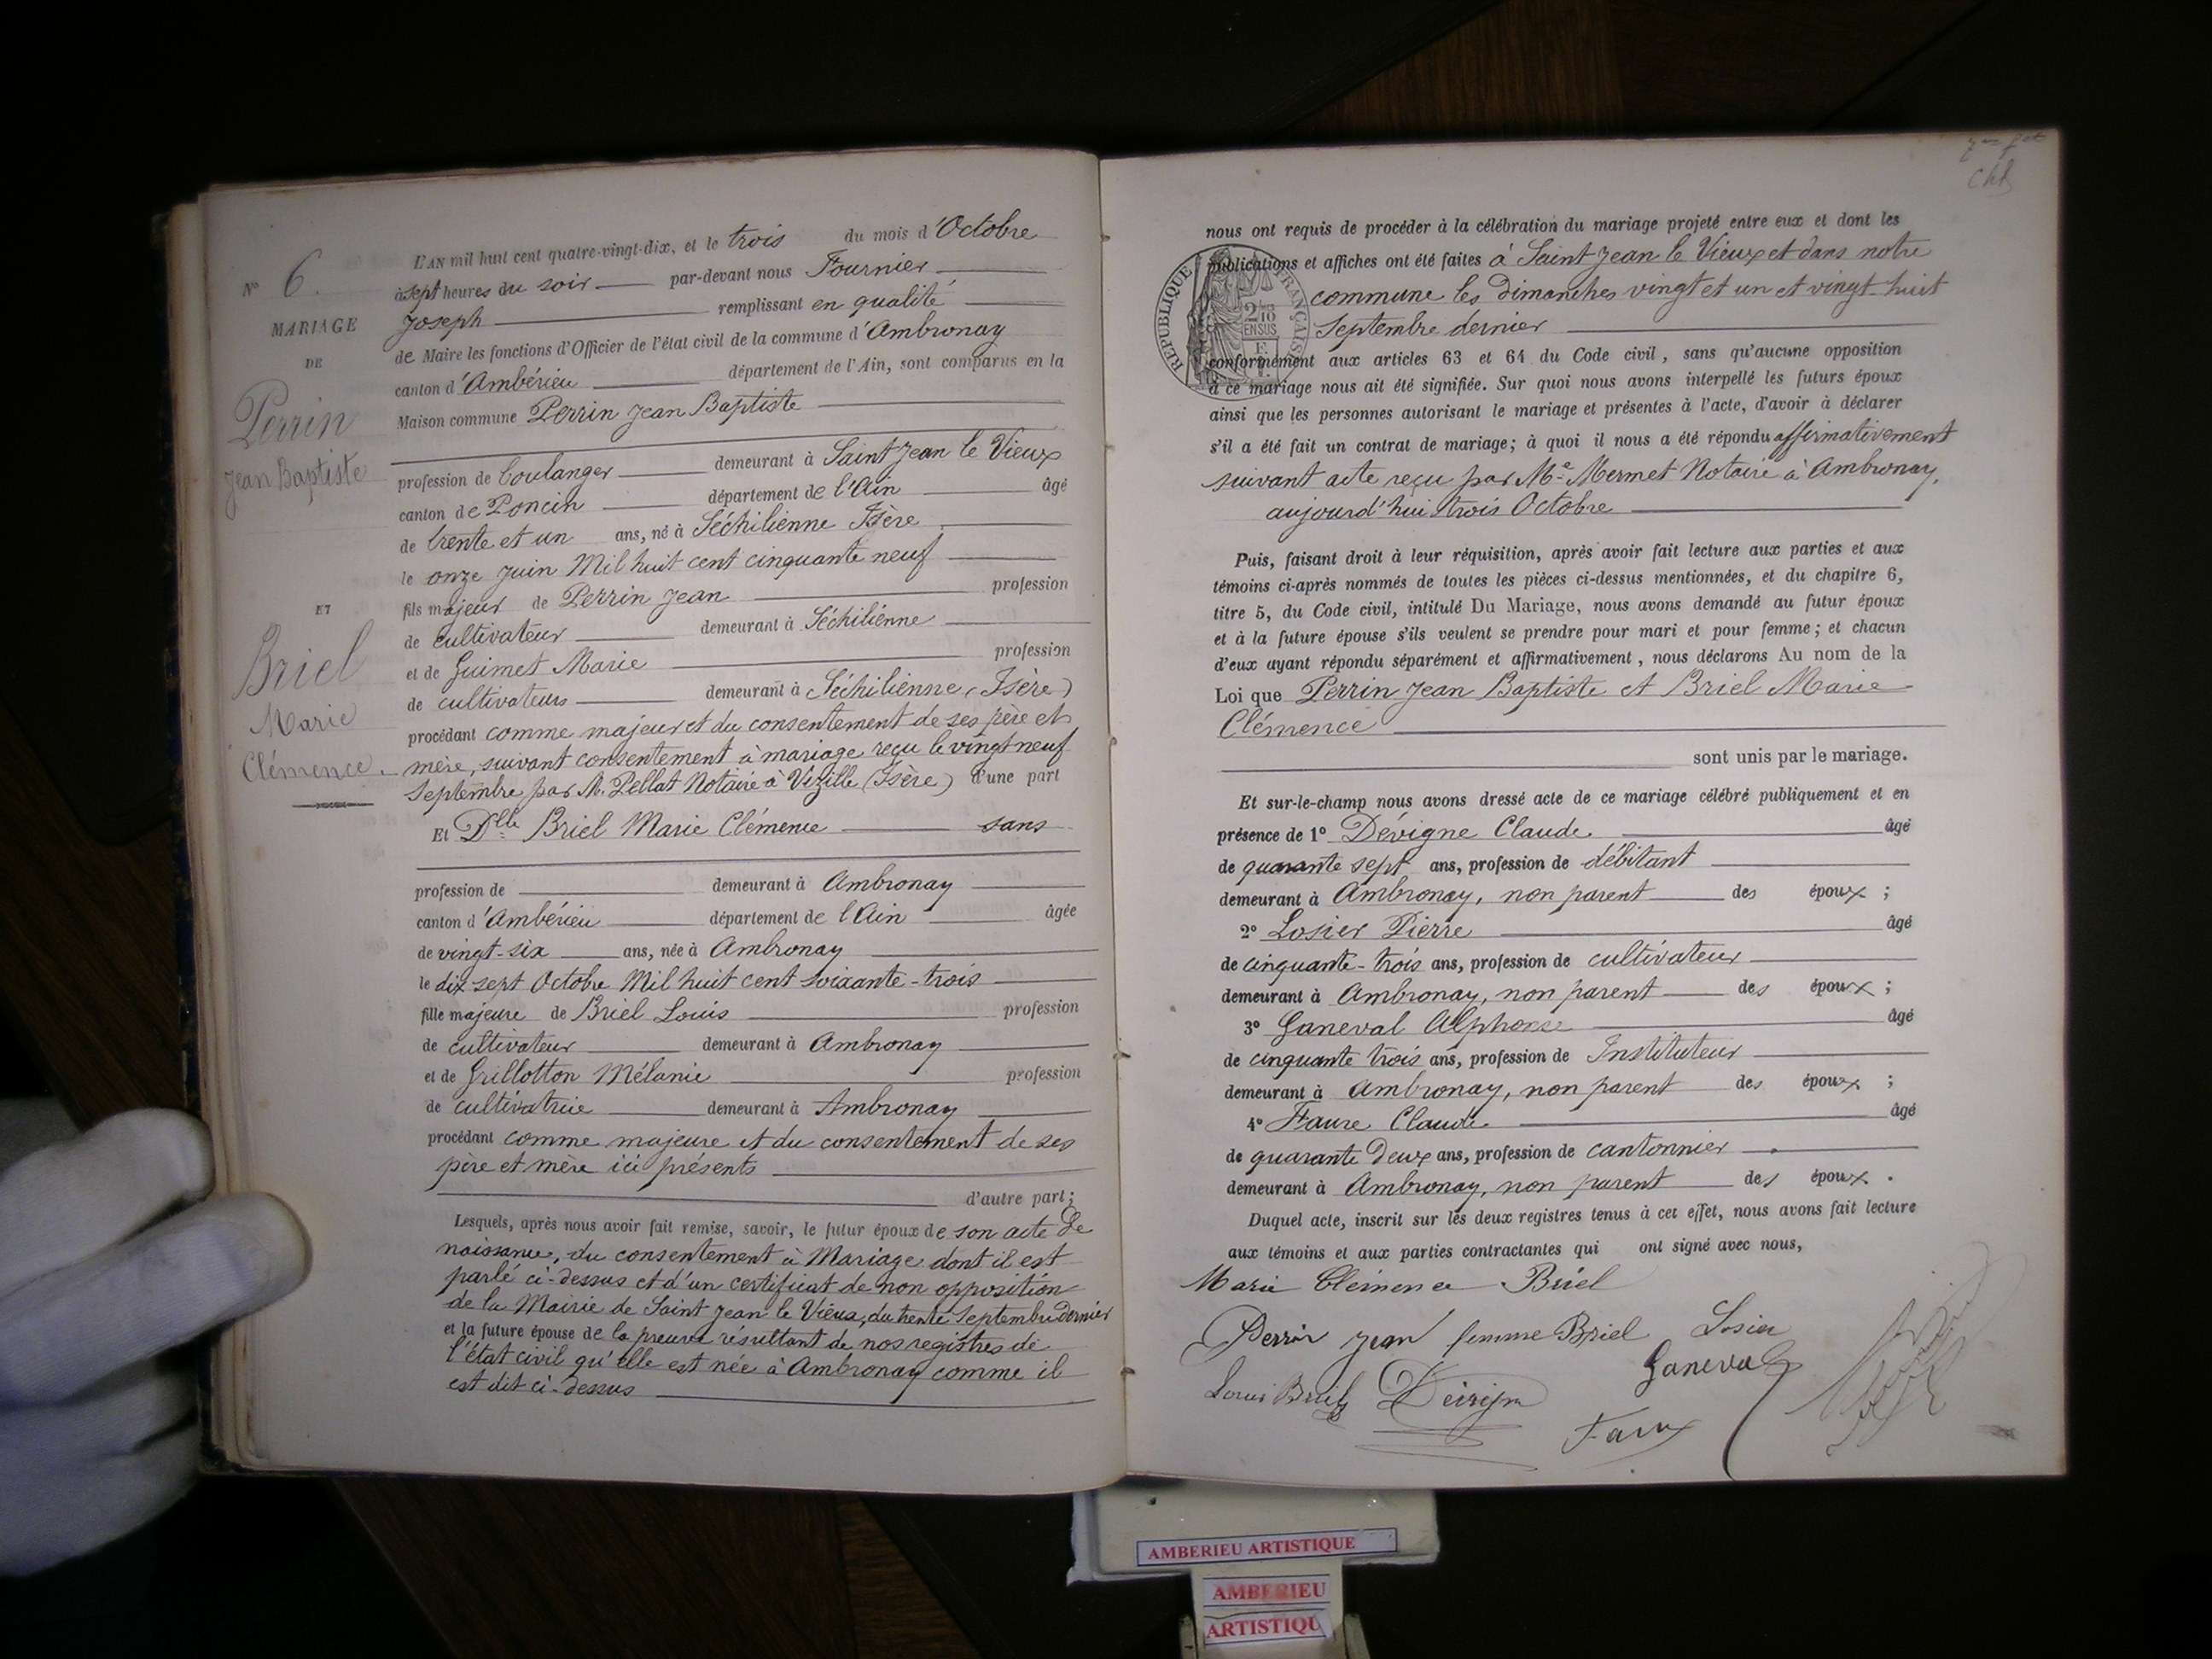 N° 6.
MARIAGE
DE
Perrin
Jean Baptiste
ET
Briel
Marie
Clémence
L'AN mil huit cent quatre-vingt-dix, et le trois du mois d'Octobre
à sept heures du soir par-devant nous Fournier
Joseph remplissant en qualité
de Maire les fonctions d'Officier de l'état civil de la commune d'Ambronay
canton d'Ambérieu département de l'Ain, sont comparus en la
Maison commune Perrin Jean Baptiste
profession de boulanger demeurant à Saint Jean le Vieux
canton de Poncin département de l'Ain âgé
de trente et un ans, né à Séchilienne Isère
le onze Juin Mil huit cent cinquante neuf
fils majeur de Perrin Jean profession
de cultivateur demeurant à Séchilienne
et de Guimet Marie profession
de cultivateurs demeurant à Séchilienne (Isère)
procédant comme majeur et du consentement de ses père et
mère, suivant consentement à mariage reçu le vingt neuf
Septembre par M. Pellat Notaire à Vizille (Isère) d'une part
Et Dlle Briel Marie Clémence sans
profession de demeurant à Ambronay
canton d'Ambérieu département de l'Ain âgée
de vingt-six ans, née à Ambronay
le dix sept Octobre Mil huit cent soixante-trois
fille majeure de Briel Louis profession
de cultivateur demeurant à Ambronay
et de Grillotton Mélanie profession
de cultivatrice demeurant à Ambronay
procédant comme majeure et du consentement de ses
père et mère ici présents
d'autre part;
Lesquels, après nous avoir fait remise, savoir, le futur époux de son acte de
naissance, du consentement à Mariage dont il est
parlé ci-dessus et d'un certificat de non opposition
de la Mairie de Saint Jean le Vieux, du trente Septembre dernier
et la future épouse de la preuve résultant de nos registres de
l'état civil qu'elle est née à Ambronay comme il
est dit ci-dessus
nous ont requis de procéder à la célébration du mariage projeté entre eux et dont les
publications et affiches ont été faites à Saint Jean le Vieux et dans notre
commune les dimanches vingt et un et vingt-huit
Septembre dernier
RÉPUBLIQUE FRANÇAISE
2/10 EN SUS
conformément aux articles 63 et 64 du Code civil, sans qu'aucune opposition
à ce mariage nous ait été signifiée. Sur quoi nous avons interpellé les futurs époux
ainsi que les personnes autorisant le mariage et présentes à l'acte, d'avoir à déclarer
s'il a été fait un contrat de mariage; à quoi il nous a été répondu affirmativement
suivant acte reçu par Me Mermet Notaire à Ambronay,
aujourd'hui trois Octobre
Puis, faisant droit à leur réquisition, après avoir fait lecture aux parties et aux
témoins ci-après nommés de toutes les pièces ci-dessus mentionnées, et du chapitre 6,
titre 5, du Code civil, intitulé Du Mariage, nous avons demandé au futur époux
et à la future épouse s'ils veulent se prendre pour mari et pour femme; et chacun
d'eux ayant répondu séparément et affirmativement, nous déclarons Au nom de la
Loi que Perrin Jean Baptiste et Briel Marie
Clémence
sont unis par le mariage.
Et sur-le-champ nous avons dressé acte de ce mariage célébré publiquement et en
présence de 1° Dévigne Claude âgé
de quarante sept ans, profession de débitant
demeurant à Ambronay, non parent des époux;
2° Losier Pierre âgé
de cinquante-trois ans, profession de cultivateur
demeurant à Ambronay, non parent des époux;
3° Ganeval Alphonse âgé
de cinquante trois ans, profession de Instituteur
demeurant à Ambronay, non parent des époux;
4° Faure Claude âgé
de quarante deux ans, profession de cantonnier
demeurant à Ambronay, non parent des époux.
Duquel acte, inscrit sur les deux registres tenus à cet effet, nous avons fait lecture
aux témoins et aux parties contractantes qui ont signé avec nous,
Marie Clémence Briel
Perrin Jean femme Briel Losier
Louis Briel Dévigne Ganeval
Faure
AMBERIEU ARTISTIQUE
AMBERIEU
ARTISTIQU